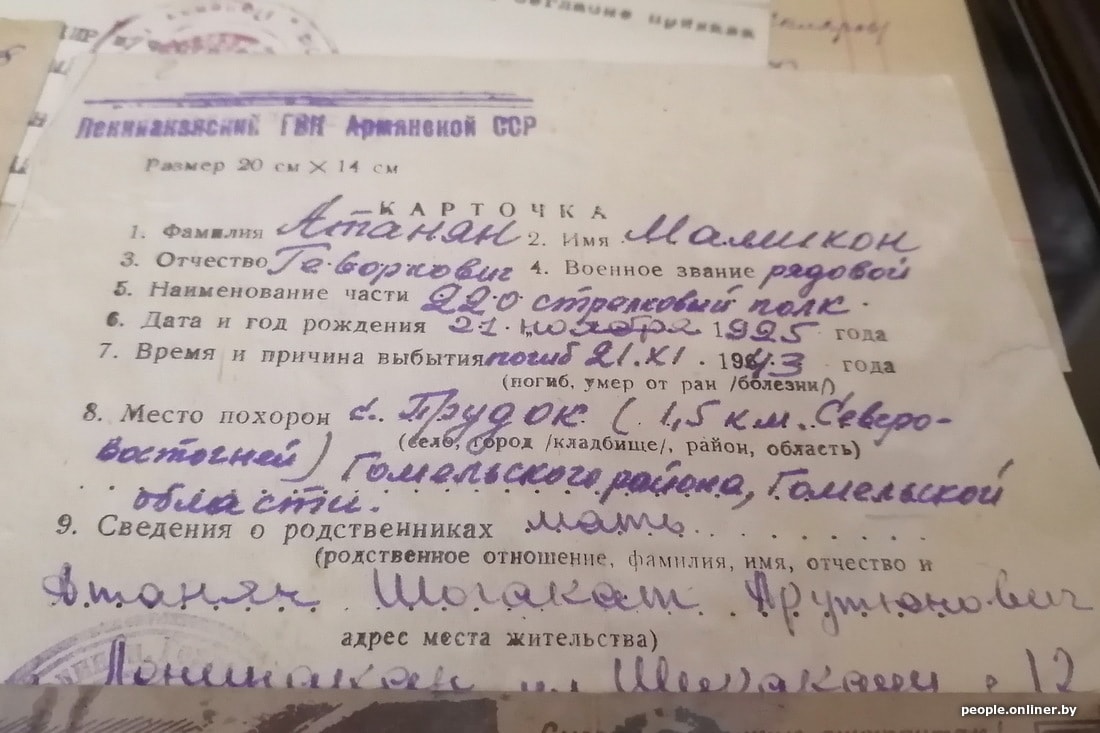 согласно
Ленинаканский ГВК Армянской ССР
Размер 20 см X 14 см
КАРТОЧКА
1. Фамилия Атанян 2. Имя Мамикон
3. Отчество Геворкович 4. Военное звание рядовой
5. Наименование части 220 стрелковый полк
6. Дата и год рождения 21 ноября 1925 года
7. Время и причина выбытия погиб 21.XI. 1943 года
(погиб, умер от ран /болезни/)
8. Место похорон с. Прудок (1,5 км. Северо-
(село, город /кладбище/, район, область)
восточней) Гомельского района, Гомельской
области.
9. Сведения о родственниках мать
(родственное отношение, фамилия, имя, отчество и
Атанян Шогакат Арутюнович
адрес места жительства)
Ленинакан ул 12
people.onliner.by